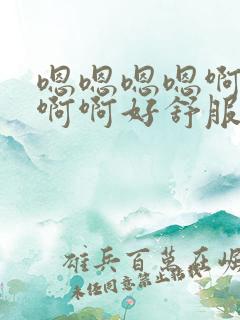 嗯嗯嗯嗯啊
啊啊好舒服
雄兵百万在崛
未经同意禁止转载